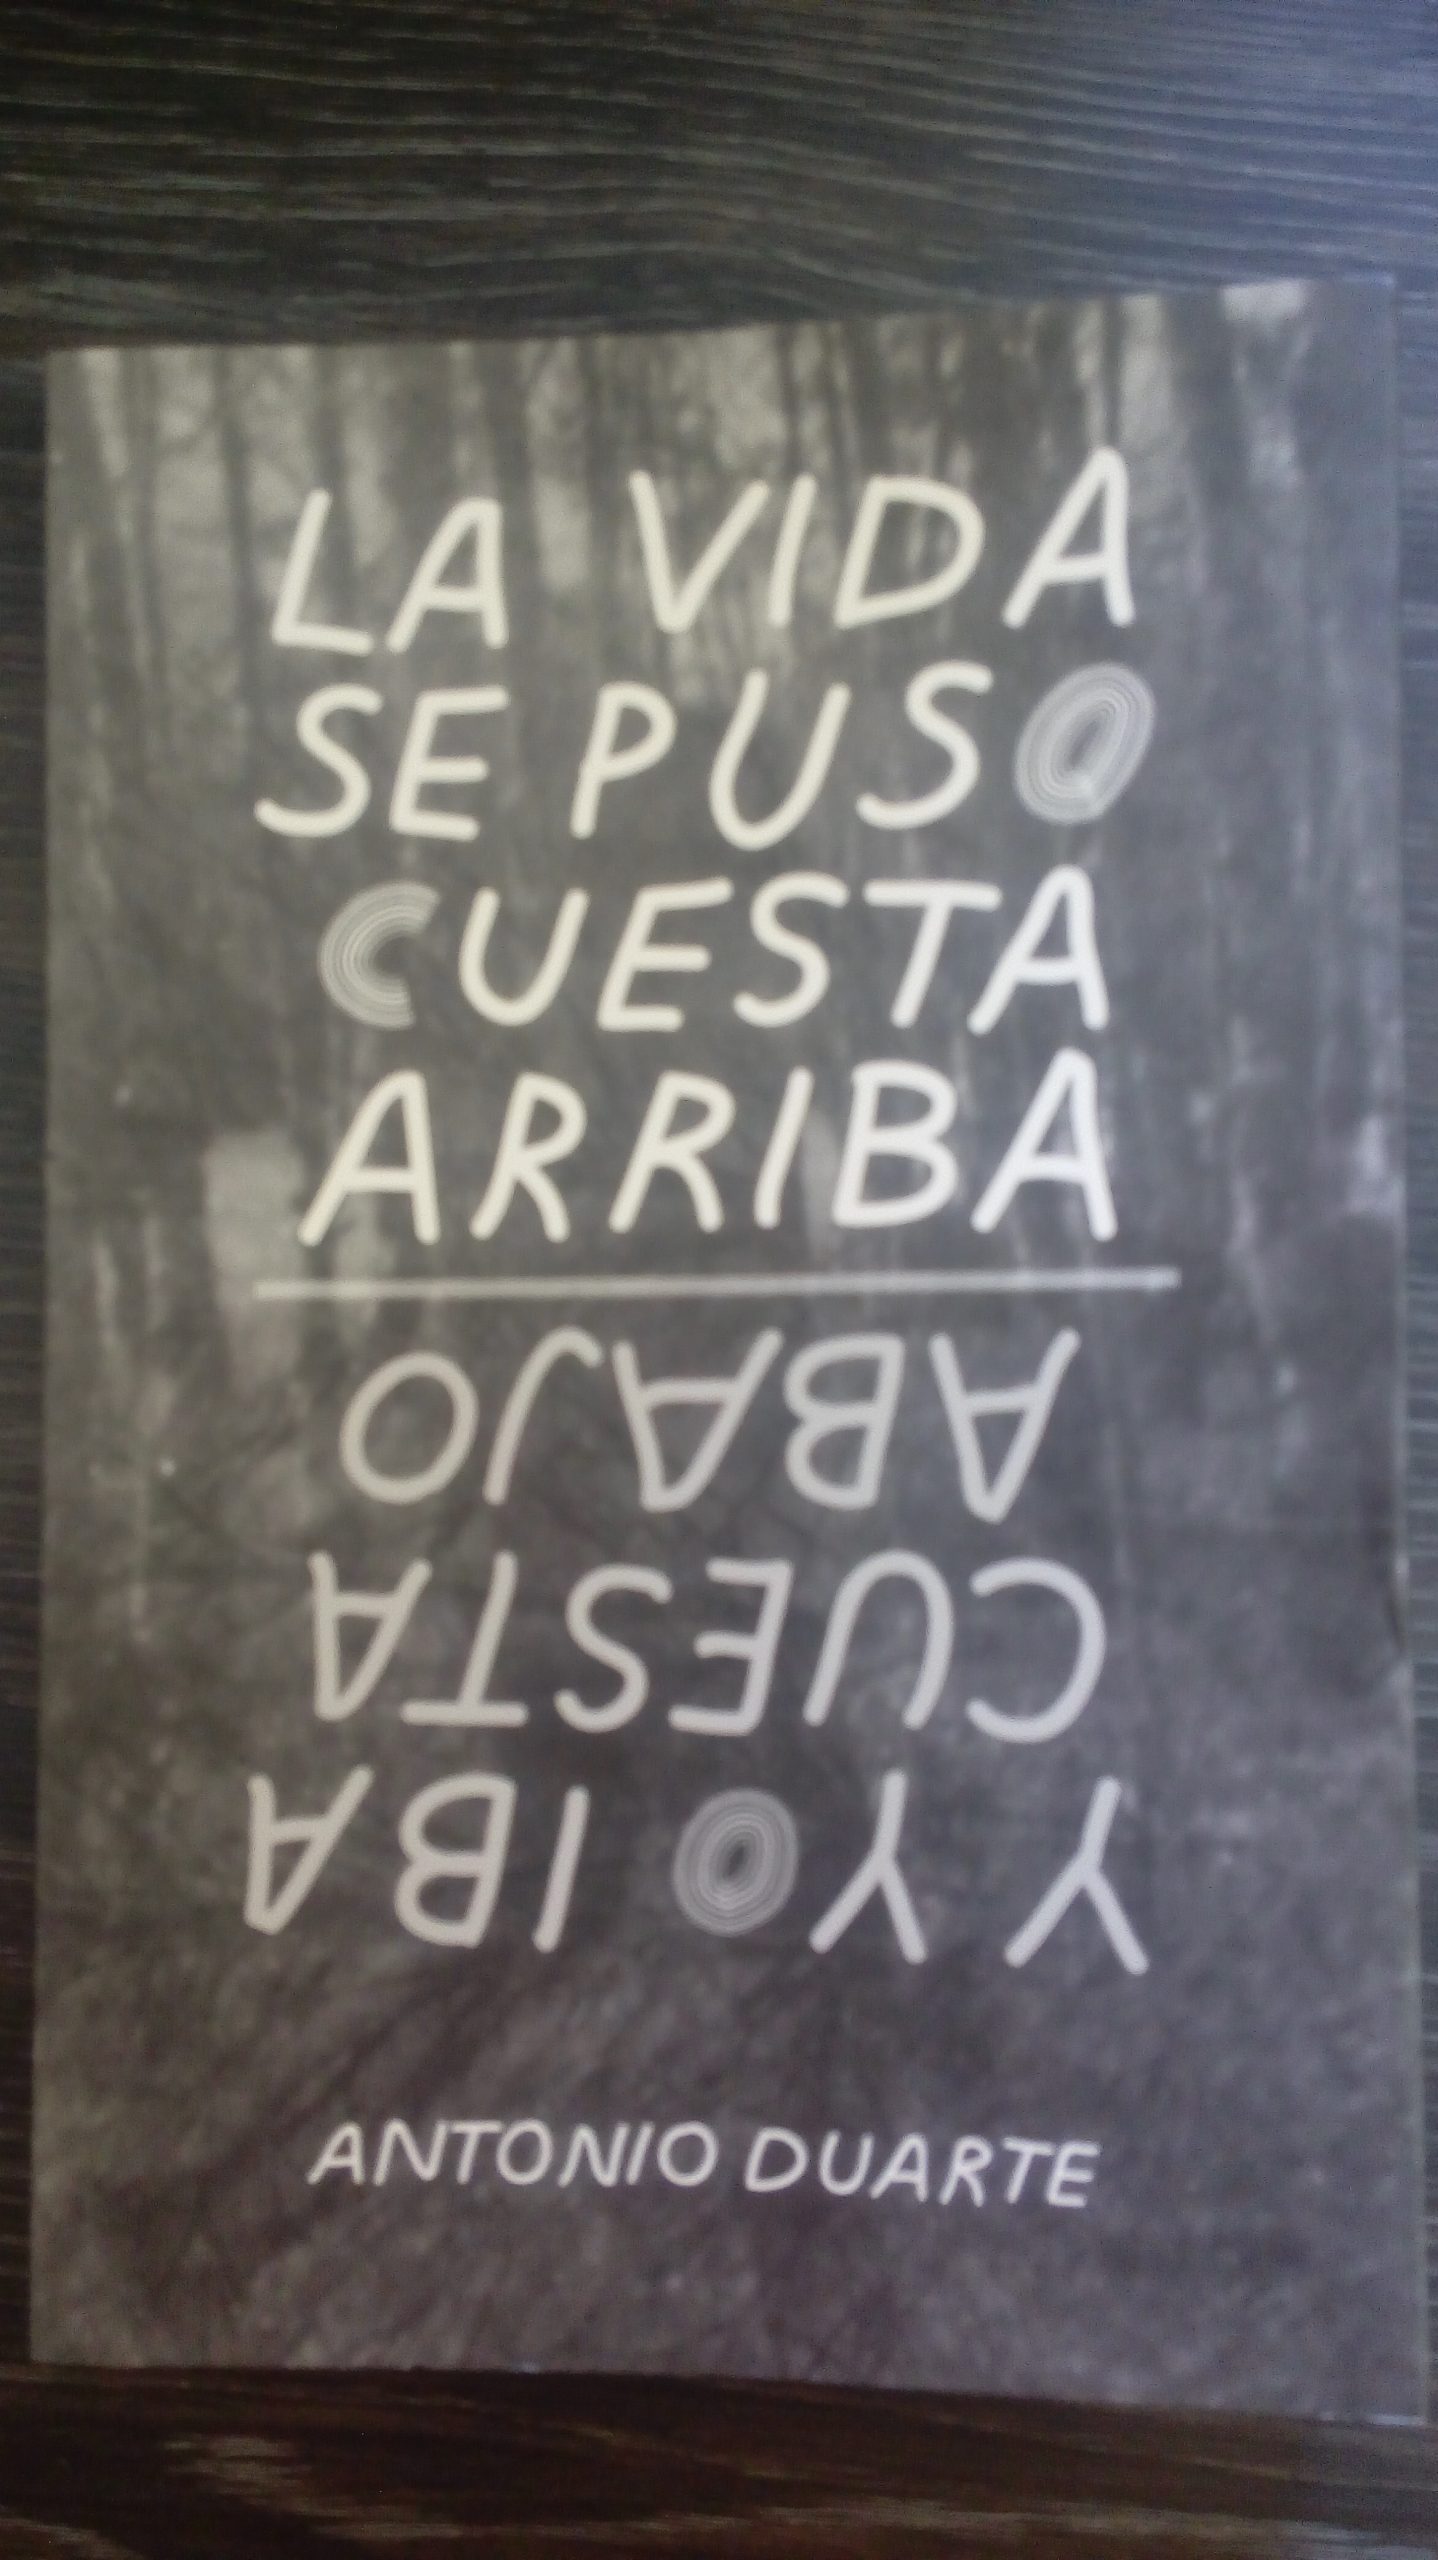 LA VIDA
SE PUSO
CUESTA
ARRIBA
Y YO IBA
CUESTA
ABAJO
ANTONIO DUARTE